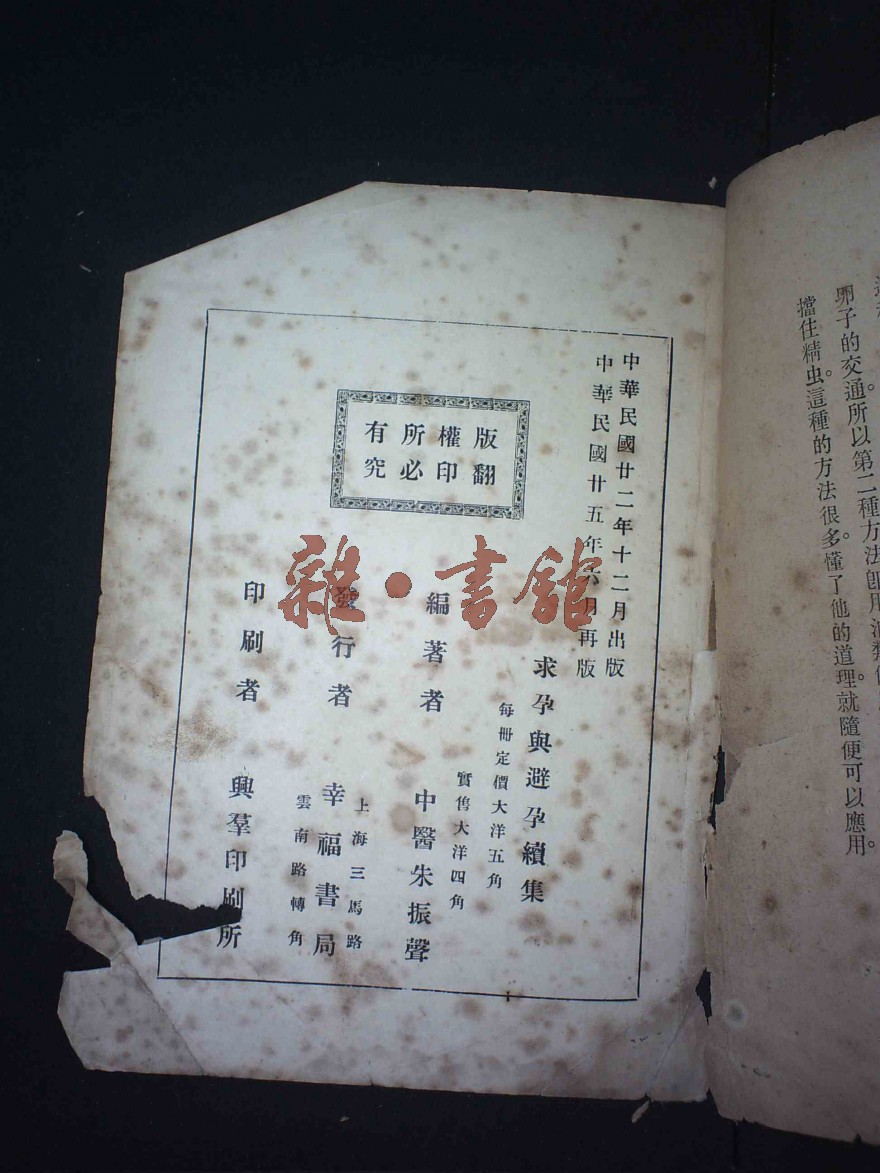 卵子的交通。所以第二種方法卽用油類
擋住精虫。這種的方法很多。懂了他的道理。就隨便可以應用。
中華民國廿二年十二月出版
中華民國廿五年六月再版
版權所有
翻印必究
求孕與避孕續集
每冊定價大洋五角
實售大洋四角
編著者 中醫朱振聲
發行者 幸福書局
上海三馬路
雲南路轉角
印刷者 興羣印刷所
雜·書館